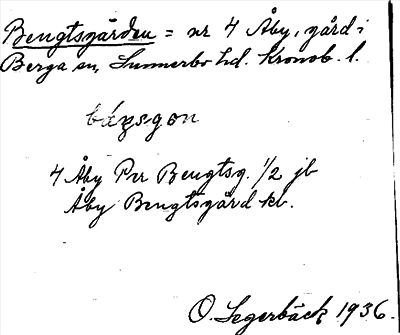 Bengtsgården = nr 4 Åby, gård i
Berga sn, Sunnerbo hd. Kronob. l.
báŋsgon
4 Åby Per Bengtsg. 1/2 jb
Åby Bengtsgård kv.
O. Segerbäck 1936.